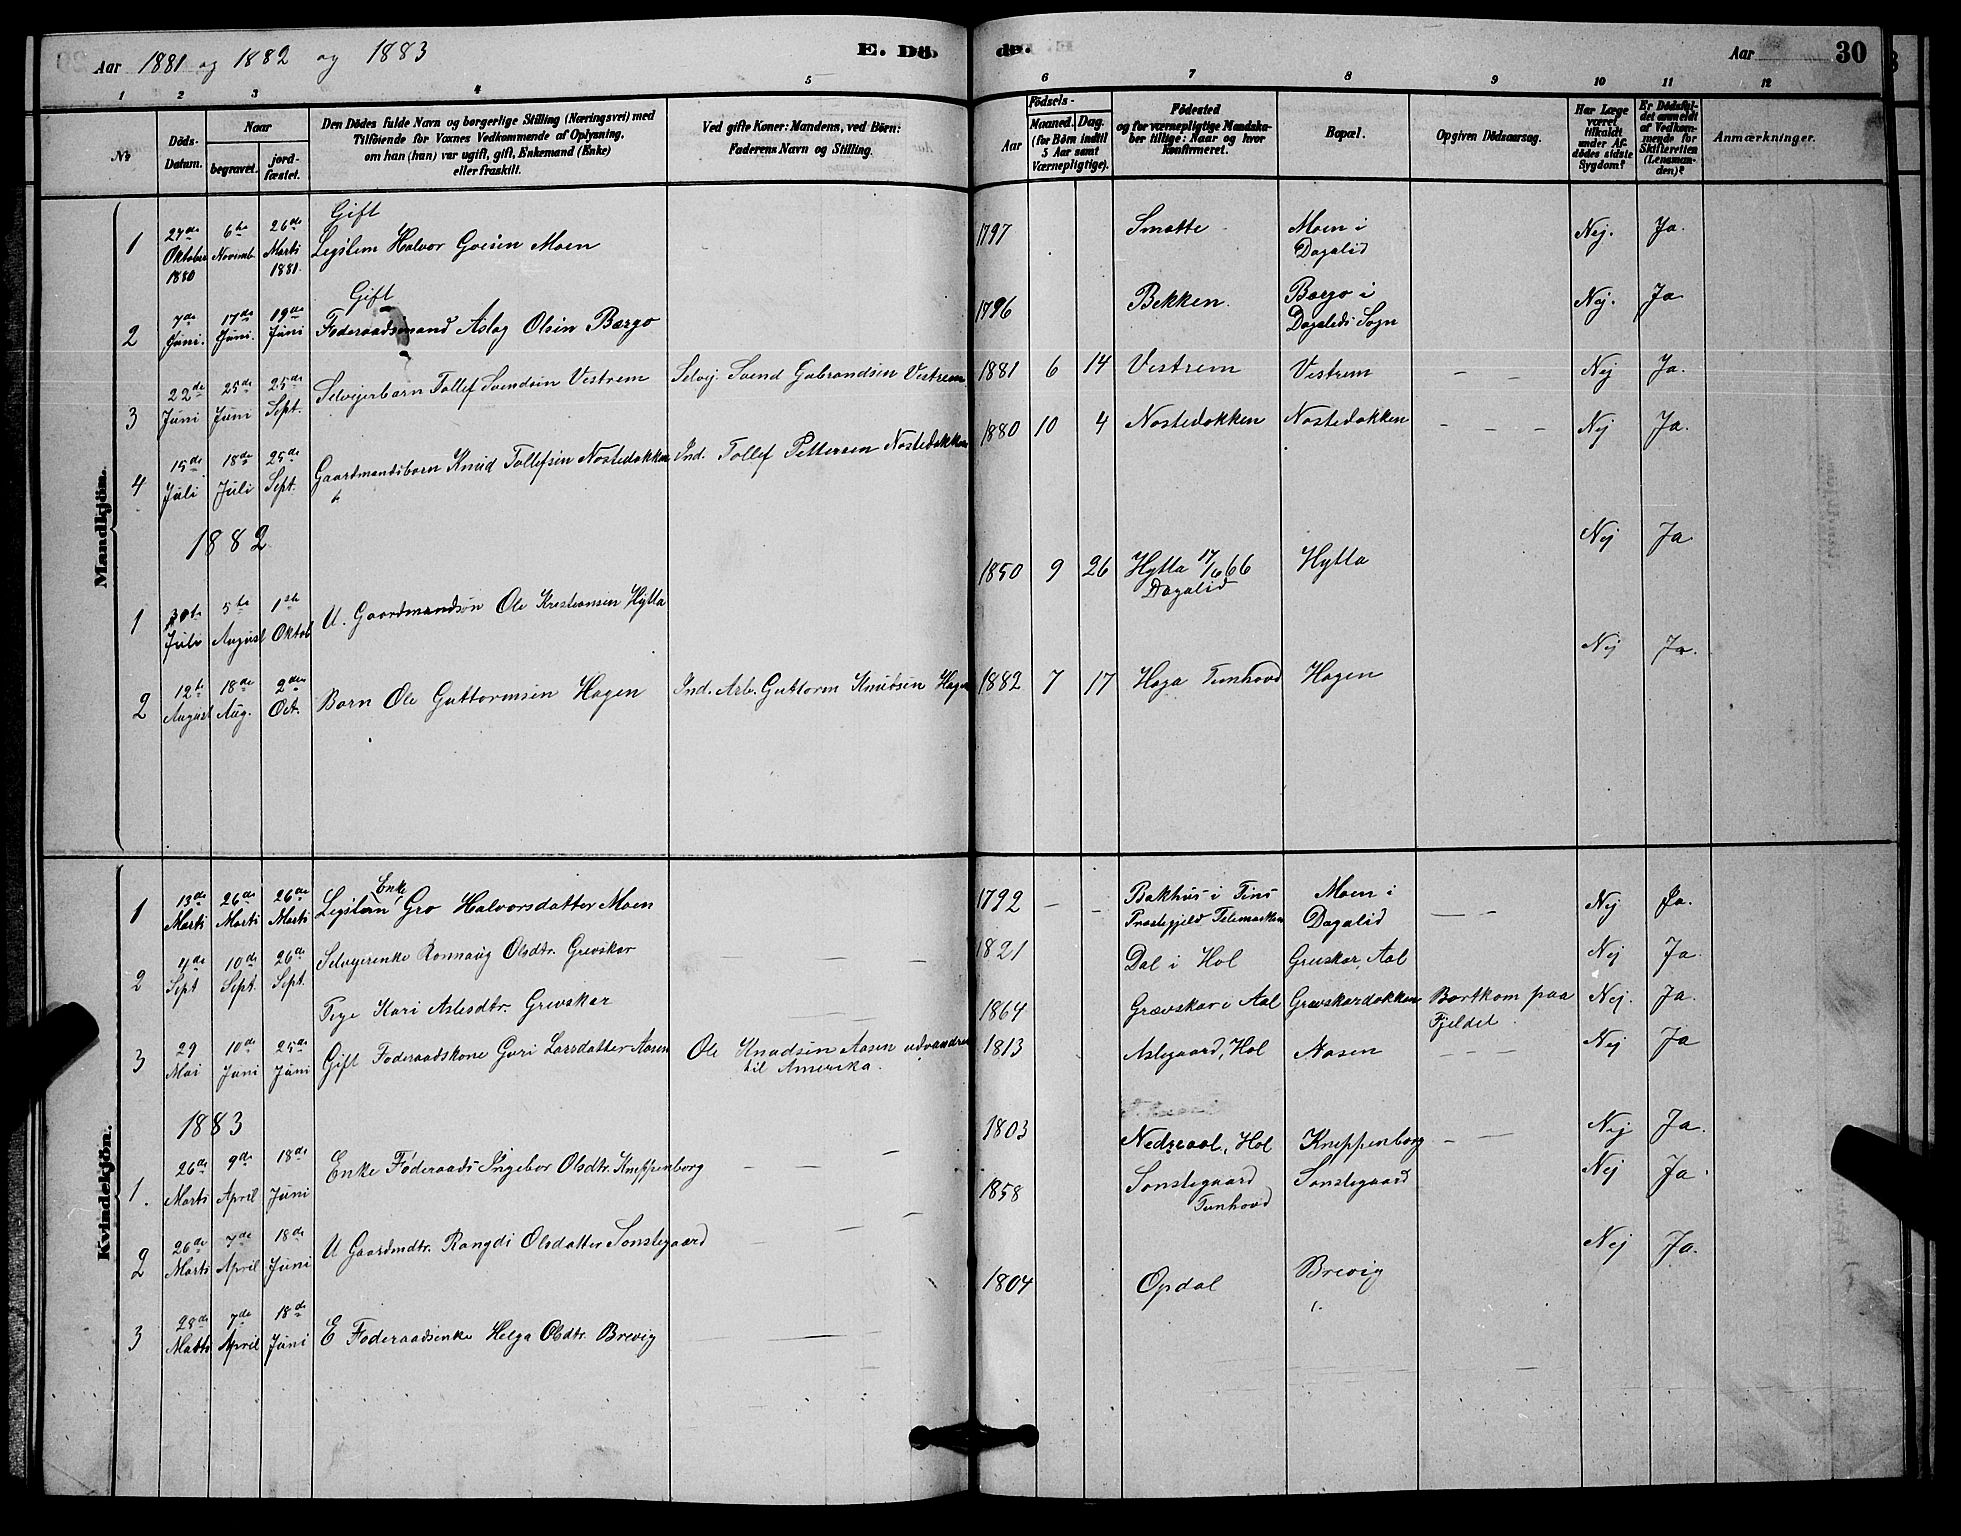 Aar 1881 og 1882 og 1883 E. Dö- de. Aar 30
1 2 3 4 5 6 7 8 9 10 11 12
No
Döds-Datum.
Naar
begravet.
jord-fæstet.
Den Dödes fulde Navn og borgerlige Stilling (Næringsvei) med
Tilföiende for Voxnes Vedkommende af Oplysning,
om han (hun) var ugift, gift, Enkemand (Enke)
eller fraskilt.
Ved gifte Koner: Mandens, ved Börn:
Faderens Navn og Stilling.
Födsels-
Aar
Maaned. Dag.
(for Börn indtil
5 Aar samt
Værnepligtige).
Födested
og for værnepligtige Mandska-
ber tillige: Naar og hvor
Konfirmeret.
Bopæl.
Opgiven Dödsaarsag.
Har Læge
været
tilkaldt
under Af-
dödes sidste
Sygdom?
Er Dödsfal-
det anmeldt
af Vedkom-
mende for
Skifteretten
(Lensman-
den)?
Anmærkninger.
Mandkjön.
1 27de Oktober 1880 6te Novemb. 26de Marts 1881. Gift Legslem Halvor Moen 1797 Smotte Moen i Dagalid Nej. Ja.
2 7de Juni. 17de Juni. 19de Juni Gift Föderaadsmand Aslag Olsen Bærgo 1796 Bekken. Bærgo i Dagalids Sogn Nej. Ja
3 22de Juni 25de Juni 25de Sept. Selvejerbarn Tollef Svendsen Vestrem Selvej. Svend Gubrandsen Vestrem 1881 6 14 Vestrem Vestrem - - Nej Ja.
4 15de Juli 18de Juli 25de Sept. Gaardmandsbarn Knud Tollefsen Nostedokken Ind. Tollef Pettersen Nostedokken 1880 10 4 Nostedokken Nostedokken - - - Nej Ja.
1882
1 30te Juli 5te August 1ste Oktob U. Gaardmandsön Ole Kristiansen Hytta 1850 9 26 Hytta 17/6 66 Dagalid Hytta Nej Ja
2 12te August 18de Aug. 2den Oct. Barn Ole Guttormsen Hagen Ind. Arb. Guttorm Knutsen Hagen 1882 7 17 Haga Tunhovd Hagen Nej Ja.
Kvindekjön.
1 13de Marts 26de Marts 26de Marts Legslem Enke Gro Halvorsdatter Moen 1792 - - Bakhus i Tins Prestegjeld Telemarken Moen i Dagalid - - Nej Ja.
2 4de Sept 10de Sept. 26de Sept. Selvejerenke Ronnaug Olsdtr. Grevskar - - 1821 Dal i Hol Greskar, Aal Nej Ja.
Pige Kari Aslesdtr. Grevskar - - 1864 Grævskar i Aal Grevskardokken Bortkom paa Fjeldet. Nej. Ja.
3 29 Mai 10de Juni 25de Juni Gift Föderaadskone Guri Larsdatter Aasen Ole Knudsen Aasen udvandret til Amerika. 1813 Aslegaard, Hol Aasen - - - Nej Ja
1883
1. 26de Marts 9de April 18de Juni Enke Föderaads Ingebor Olsdtr. Knippenborg - - - 1803 Nedreaal, Hol Knippenborg - - Nej Ja.
2 26de Marts 7de April 18de Juni U Gaardmdtr. Rangdi Olsdatter Sønstegaard - - - 1858 Sonstegaard Tunhovd Sonstegaard Nej Ja.
3 28de Marts 7de April 18de Juni E Föderaadsenke Helga Olsdtr. Brevig 1804 Opdal Brevig Nej Ja.